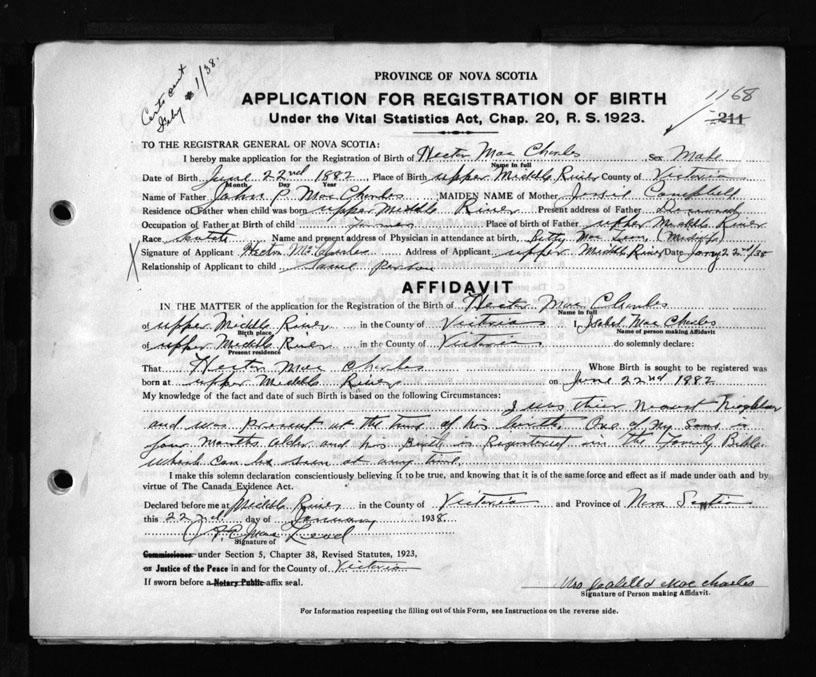 Certs sent
July 1/38.
PROVINCE OF NOVA SCOTIA
1168
APPLICATION FOR REGISTRATION OF BIRTH
211
Under the Vital Statistics Act, Chap. 20, R. S. 1923.
TO THE REGISTRAR GENERAL OF NOVA SCOTIA:
I hereby make application for the Registration of Birth of Hector Mac Charles Sex Male
Name in full
Date of Birth June 22nd 1882 Place of Birth upper Middle River County of Victoria
Month Day Year
Name of Father John P MacCharles MAIDEN NAME of Mother Jessie Campbell
Residence of Father when child was born upper Middle River Present address of Father
Occupation of Father at Birth of child Farmer Place of birth of Father upper Middle River
Race Name and present address of Physician in attendance at birth, (Midwife)
Signature of Applicant Hector McCharles Address of Applicant upper Middle River Date 22nd/38
Relationship of Applicant to child Same Person
AFFIDAVIT
IN THE MATTER of the application for the Registration of the Birth of Hector Mac Charles
Name in full
of upper Middle River in the County of Victoria I, Mac Charles
Birth place Name of person making Affidavit
of upper Middle River in the County of Victoria do solemnly declare:
Present residence
That Hector Mac Charles Whose Birth is sought to be registered was
born at upper Middle River on June 22nd 1882
My knowledge of the fact and date of such Birth is based on the following Circumstances:
I was their Nearest Neighbor
and was present at the time of his birth. One of my Sons is
four Months older and his Birth is Registered in the Family Bible
which can be seen at any time.
I make this solemn declaration conscientiously believing it to be true, and knowing that it is of the same force and effect as if made under oath and by
virtue of The Canada Evidence Act.
Declared before me at Middle River in the County of Victoria and Province of Nova Scotia
this 22nd day of January 1938.
Mac Leod
Signature of
Commissioner under Section 5, Chapter 38, Revised Statutes, 1923,
or Justice of the Peace in and for the County of Victoria
If sworn before a Notary Public affix seal.
Mrs Mac Charles
Signature of Person making Affidavit.
For Information respecting the filling out of this Form, see Instructions on the reverse side.